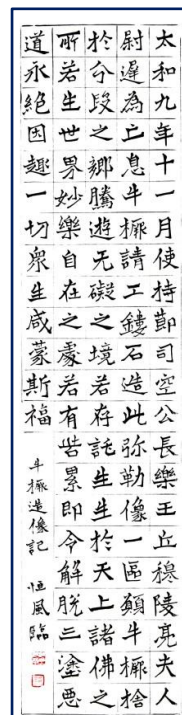 太和九年十一月使持節司空公長樂王丘穆陵亮夫人
尉遲為亡息牛橛請工鏤石造此弥勒像一區願牛橛捨
於分段之鄉騰遊无礙之境若存託生生於天上諸佛之
所若生世界妙樂自在之處若有苦累即令解脫三塗惡
道永絕因趣一切衆生咸蒙斯福
牛橛造像記 恒風臨